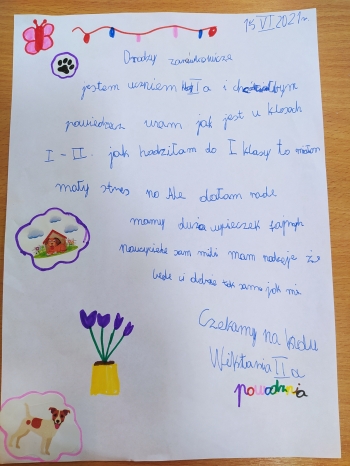 15 VI 2021r
Drodzy zerówkowicze
jestem uczniem IIa i chciałbym
powiedzieć wam jak jest w klasach
I - II. jak hodziłam do I klasy to miałam
mały stres no Ale dałam rade
mamy dużo wycieczek fajnych
Nauczyciele sam mili mam nadzieje że
będe ci dobże tak samo jak mi
Czekamy na Ciebie
Wiktoria II a
powodzenia